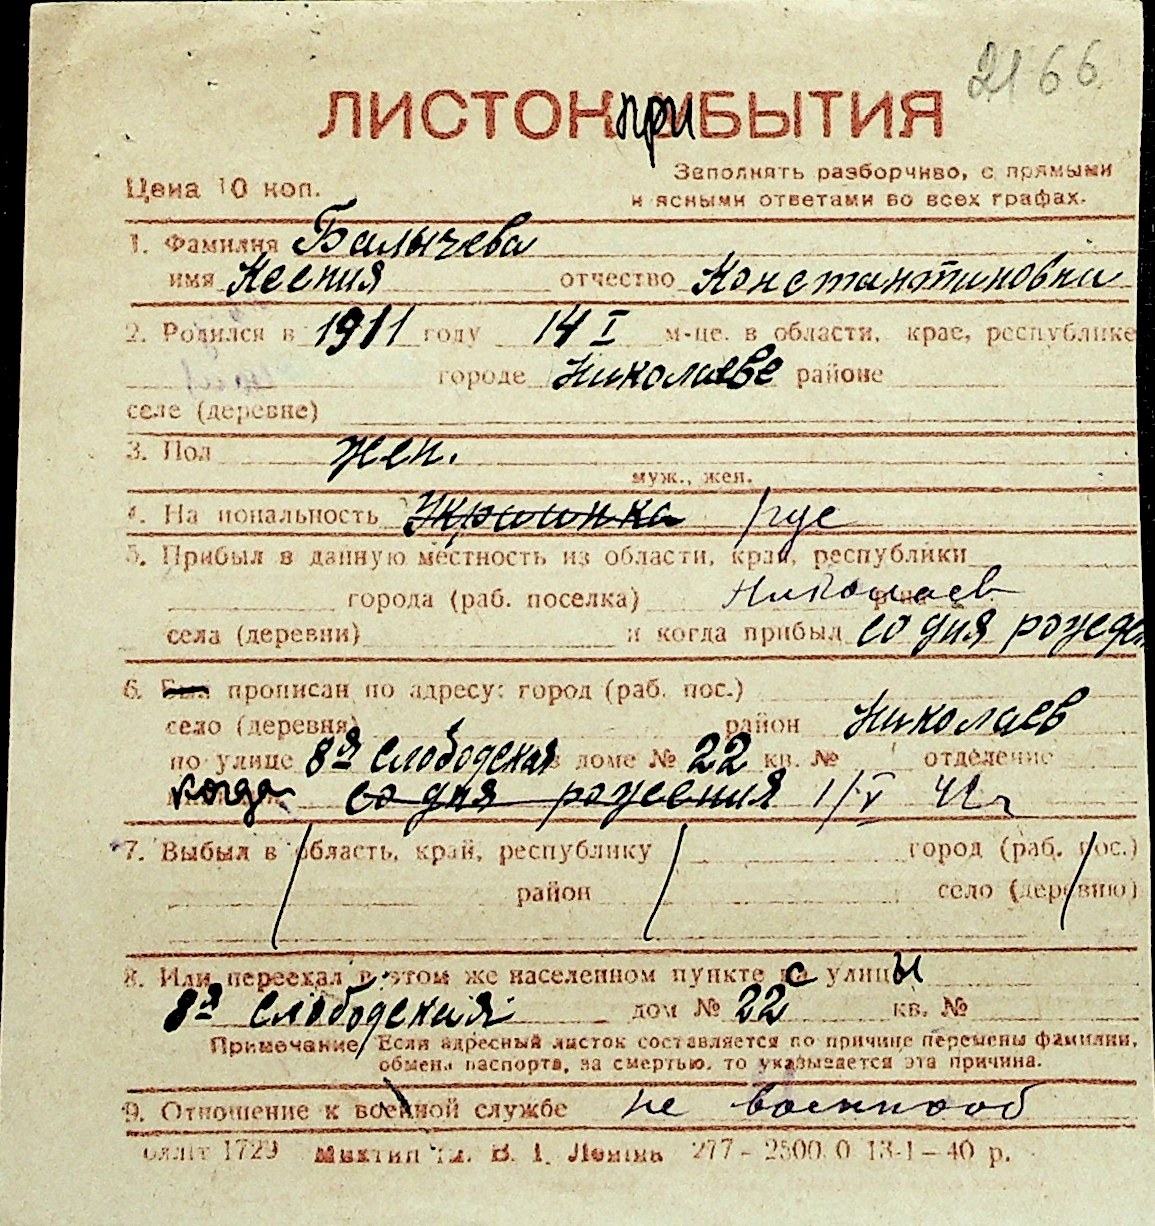 2166
ЛИСТОК ПРИБЫТИЯ
Цена 10 коп.
Заполнять разборчиво, с прямыми
и ясными ответами во всех графах.
1. Фамилия Балычева
имя Ксения отчество Константиновна
2. Родился в 1911 году 14 I м-це. в области, крае, республике
городе Николаеве районе
селе (деревне)
3. Пол жен.
муж., жен.
4. Национальность Украинка рус
5. Прибыл в данную местность из области, края, республики
города (раб. поселка) Николаев
села (деревни) и когда прибыл со дня рожден
6. Был прописан по адресу: город (раб. пос.)
село (деревня) район Николаев
по улице 8я Слободская в доме № 22 кв. № отделение
когда со дня рожения 1/V 42 г
7. Выбыл в область, край, республику город (раб. пос.)
район село (деревню)
8. Или переехал в этом же населенном пункте с улицы
8я Слободская дом № 22 кв. №
Примечание: Если адресный листок составляется по причине перемены фамилии,
обмена паспорта, за смертью, то указывается эта причина.
9. Отношение к военной службе не военнооб
Облліт 1729 Миктип ім. В. І. Леніна 277-2500.0 13-1-40 р.